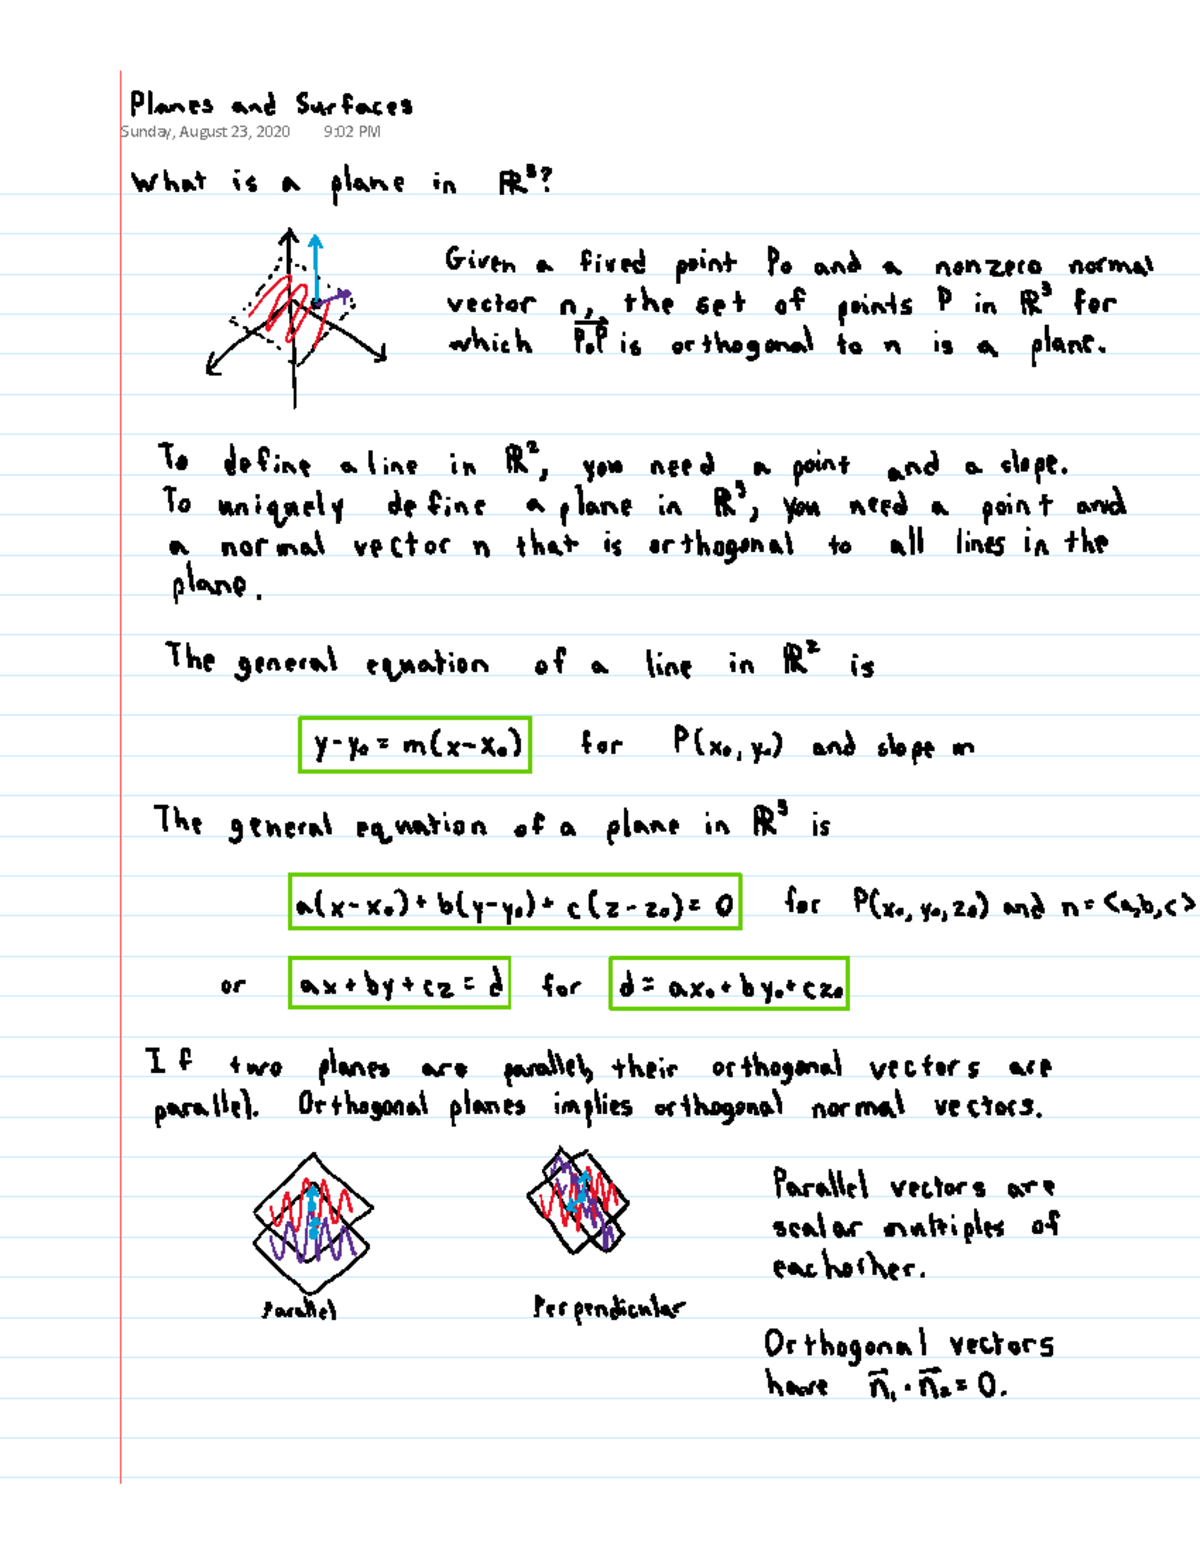 Planes and Surfaces
Sunday, August 23, 2020 9:02 PM
What is a plane in ℝ³?
Given a fixed point P₀ and a nonzero normal
vector n, the set of points P in ℝ³ for
which P₀P is orthogonal to n is a plane.
To define a line in ℝ², you need a point and a slope.
To uniquely define a plane in ℝ³, you need a point and
a normal vector n that is orthogonal to all lines in the
plane.
The general equation of a line in ℝ² is
y-y₀ = m(x-x₀) for P(x₀, y₀) and slope m
The general equation of a plane in ℝ³ is
a(x-x₀) + b(y-y₀) + c(z-z₀) = 0 for P(x₀, y₀, z₀) and n = <a,b,c>
or ax + by + cz = d for d = ax₀ + by₀ + cz₀
If two planes are parallel, their orthogonal vectors are
parallel. Orthogonal planes implies orthogonal normal vectors.
Parallel
Perpendicular
Parallel vectors are
scalar multiples of
eachother.
Orthogonal vectors
have n⃗₁ · n⃗₂ = 0.